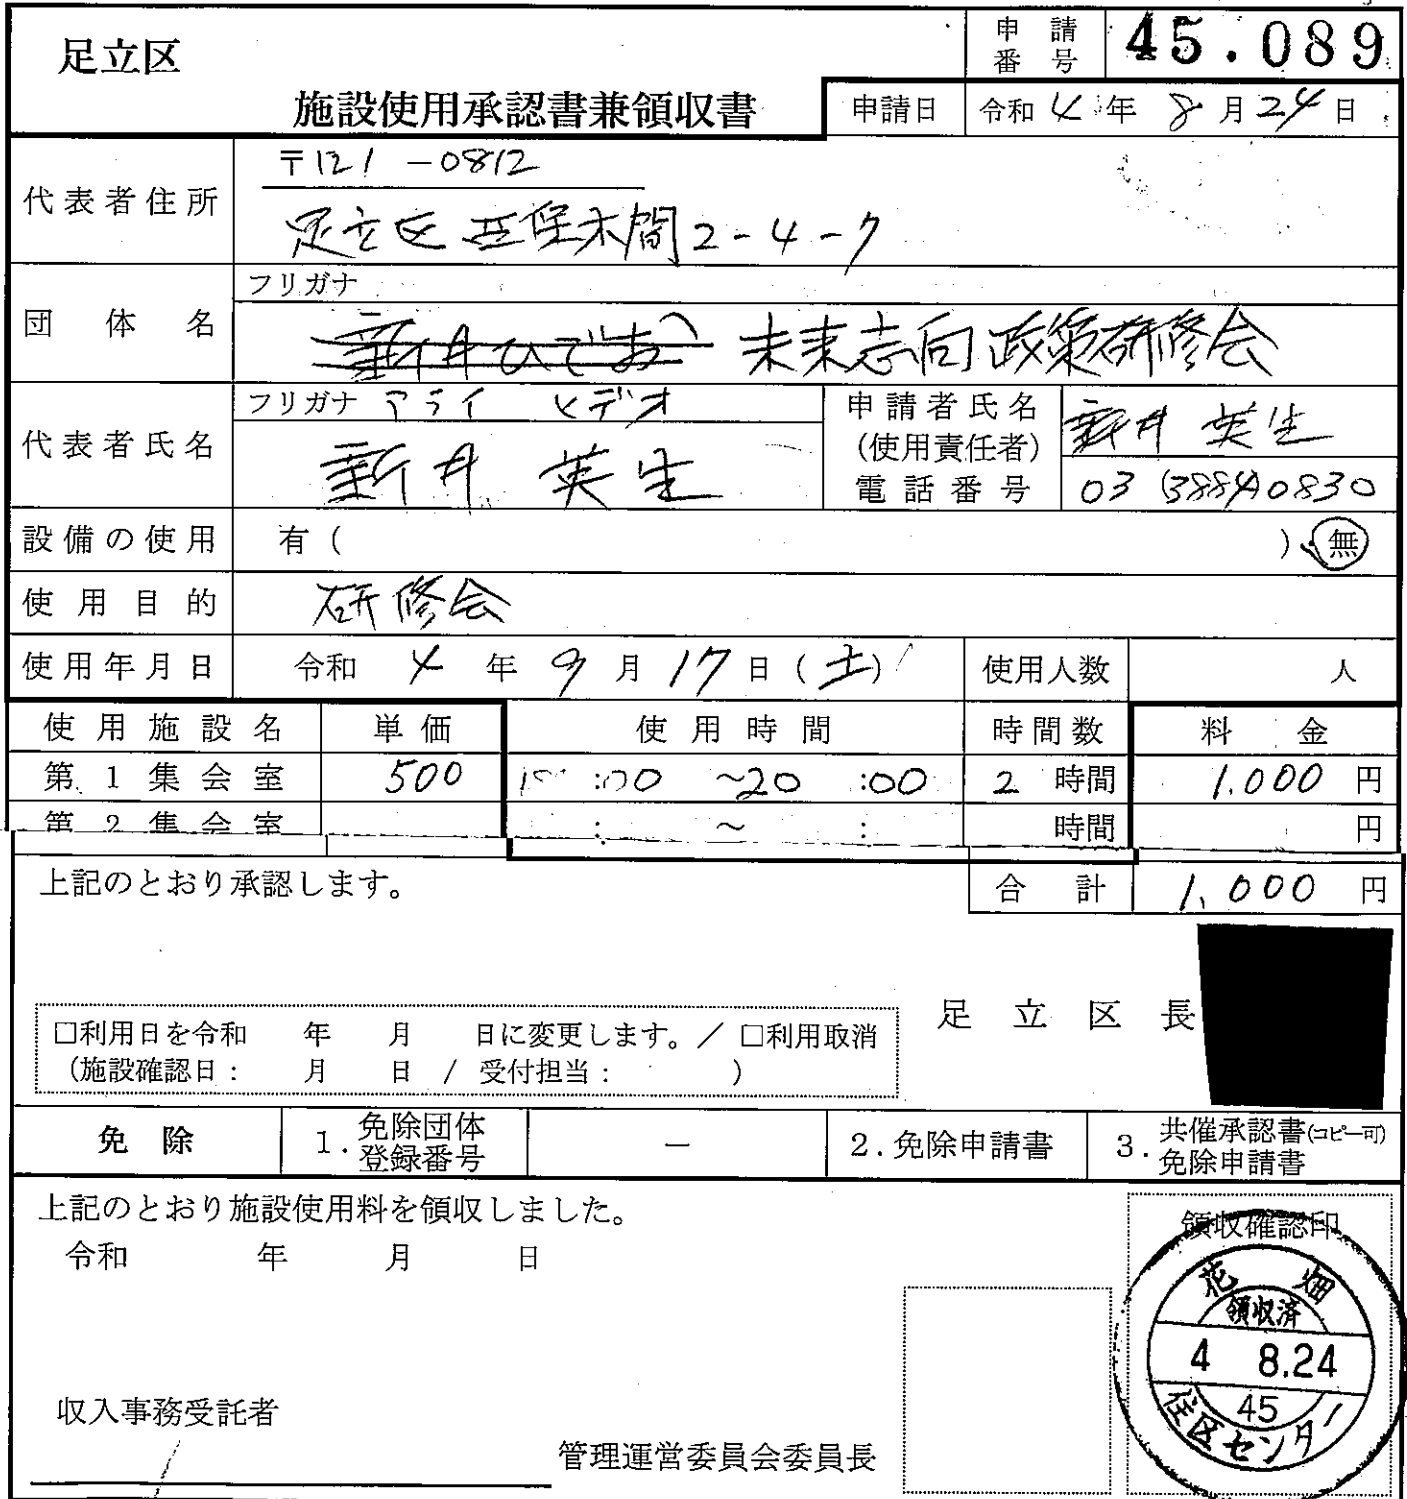 足立区
申請番号 45.089
施設使用承認書兼領収書
申請日 令和4年8月24日
代表者住所 〒121-0812
足立区西保木間2-4-7
団体名 フリガナ
新井ひでお 未来志向政策研修会
代表者氏名 フリガナ アライ ヒデオ
新井 英生
申請者氏名 新井 英生
(使用責任者)
電話番号 03(3884)0830
設備の使用 有( )・無
使用目的 研修会
使用年月日 令和4年9月17日(土) 使用人数 人
使用施設名 単価 使用時間 時間数 料金
第1集会室 500 :00 ~20:00 2時間 1,000円
第2集会室 : ~ : 時間 円
上記のとおり承認します。 合計 1,000円
足立区長
□利用日を令和 年 月 日に変更します。/□利用取消
(施設確認日: 月 日 / 受付担当: )
免除 1.免除団体登録番号 - 2.免除申請書 3.共催承認書(コピー可)免除申請書
上記のとおり施設使用料を領収しました。
令和 年 月 日
領収確認印
花畑
領収済
4 8.24
45
住区センター
収入事務受託者
管理運営委員会委員長